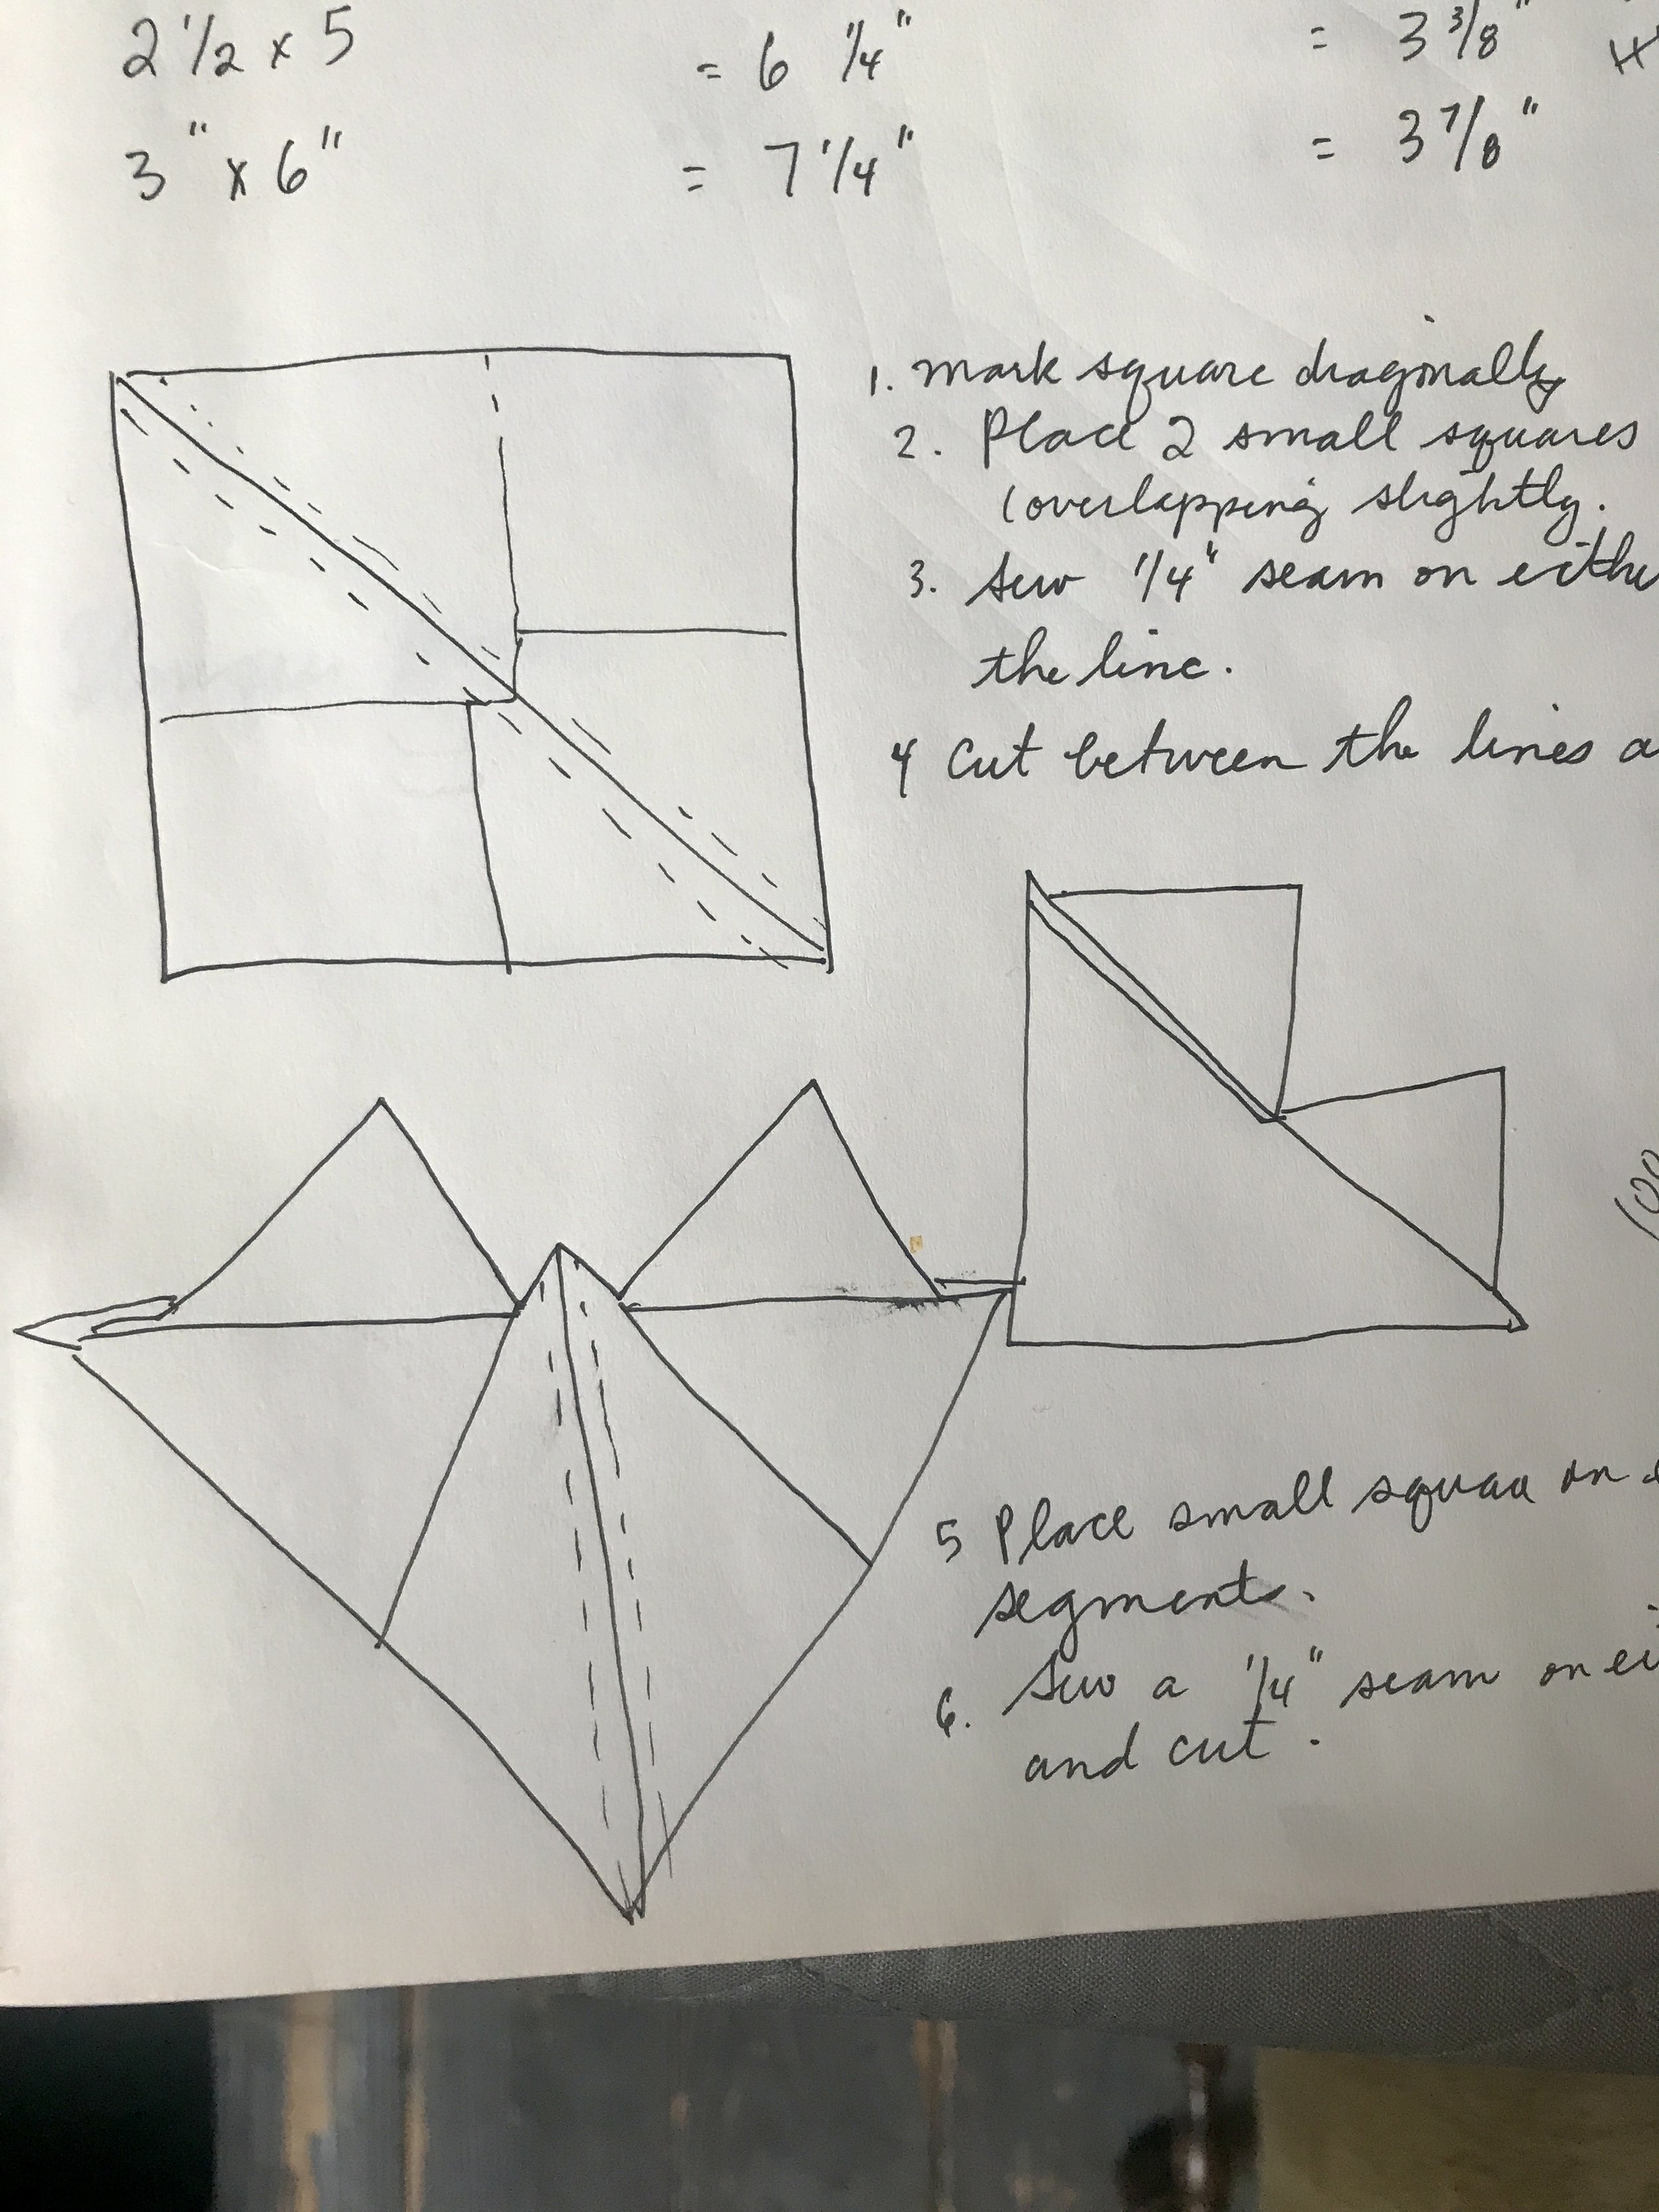 2 1/2 x 5 = 6 1/4" = 3 3/8"
3" x 6" = 7 1/4" = 3 7/8"
1. mark square diagonally
2. Place 2 small squares
(overlapping slightly.
3. Sew 1/4" seam on eithe
the line.
4 Cut between the lines a
5 Place small square on
segments.
6. Sew a 1/4" seam on ei
and cut.